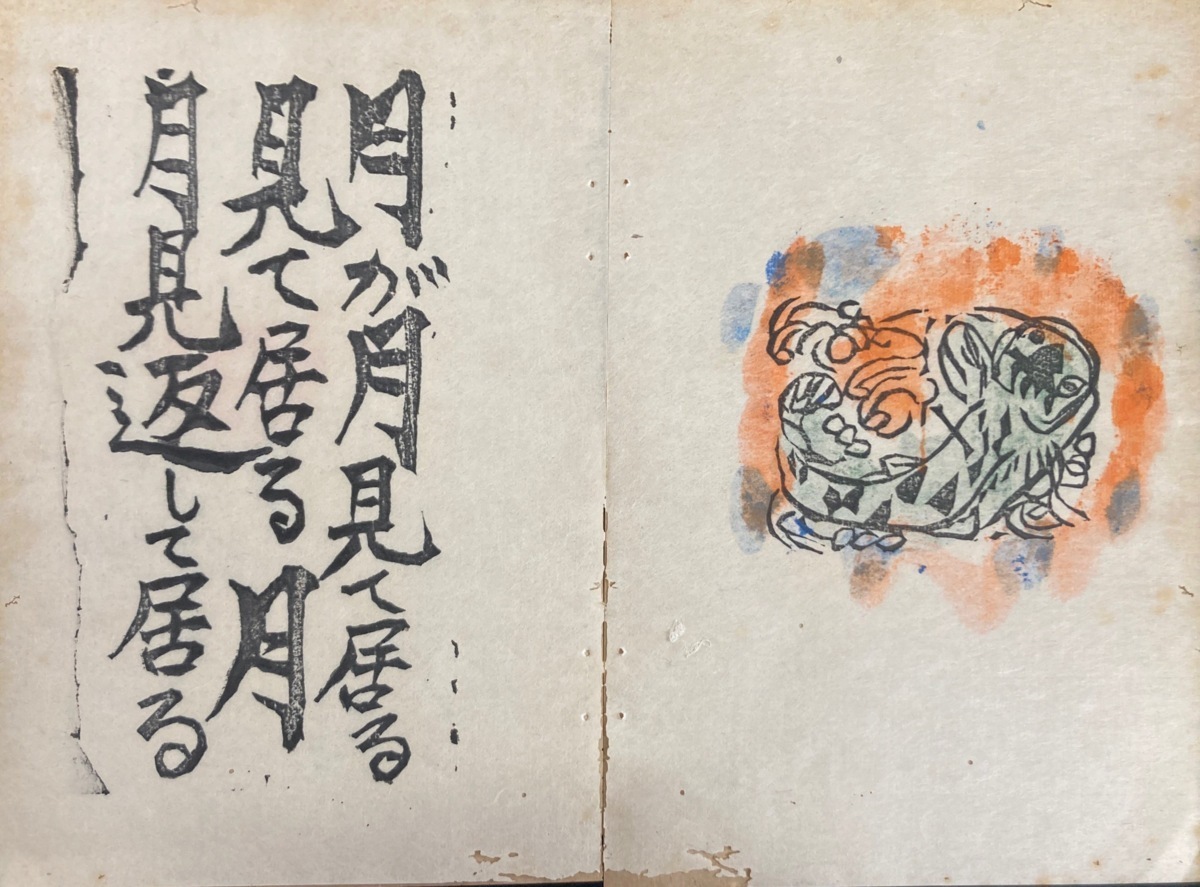 月が月見て居る
見て居る月
月見返して居る